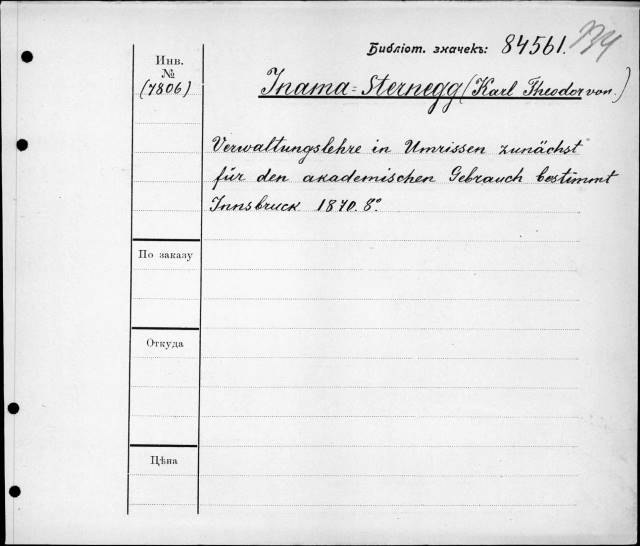 Библіот. значекъ: 84561.
Инв.
№
(7806)
Inama-Sternegg (Karl Theodor von.)
Verwaltungslehre in Umrissen zunächst
für den akademischen Gebrauch bestimmt
Innsbruck 1870. 8°.
По заказу
Откуда
Цѣна